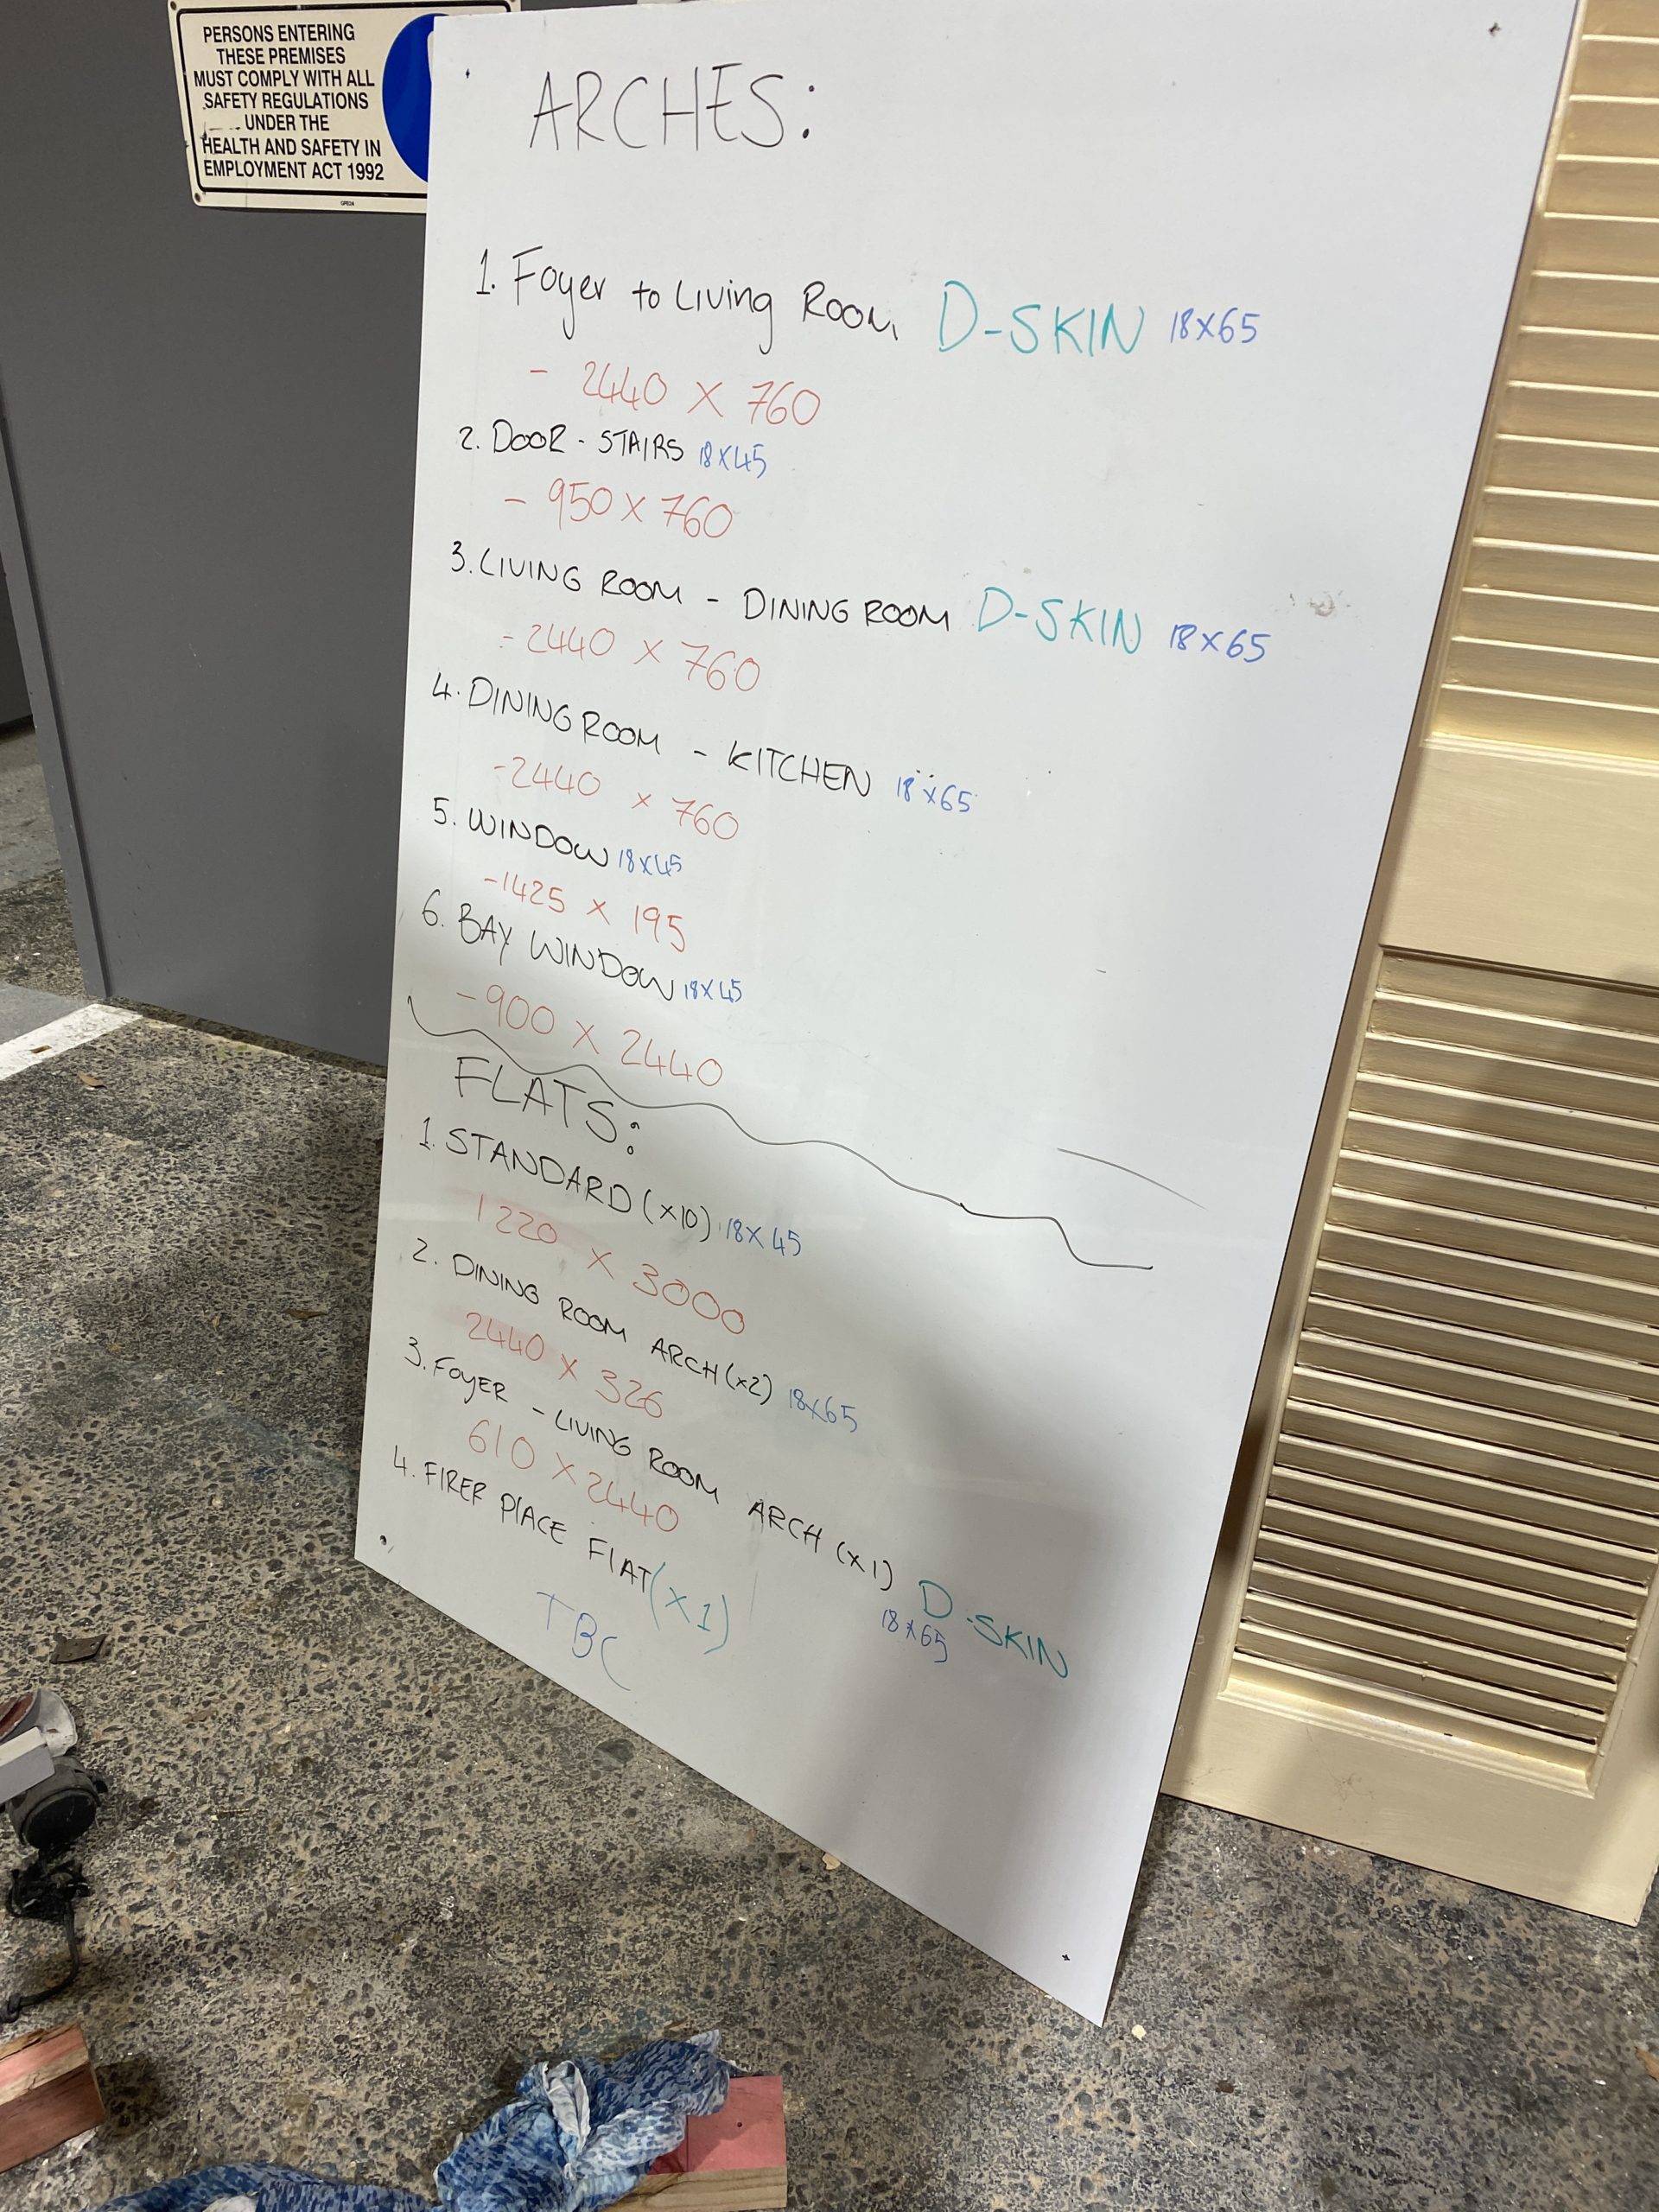 PERSONS ENTERING
THESE PREMISES
MUST COMPLY WITH ALL
SAFETY REGULATIONS
UNDER THE
HEALTH AND SAFETY IN
EMPLOYMENT ACT 1992
ARCHES:
1. Foyer to Living Room D-SKIN 18x65
- 2440 x 760
2. DOOR - STAIRS 18x45
- 950 x 760
3. LIVING ROOM - DINING ROOM D-SKIN 18x65
- 2440 x 760
4. DINING ROOM - KITCHEN 18x65
- 2440 x 760
5. WINDOW 18x45
- 1425 x 195
6. BAY WINDOW 18x45
- 900 x 2440
FLATS:
1. STANDARD (x10) 18x45
1220 x 3000
2. DINING ROOM ARCH (x2) 18x65
2440 x 326
3. FOYER - LIVING ROOM ARCH (x1) D-SKIN
18x65
610 x 2440
4. FIRER PLACE FLAT (x1)
TBC